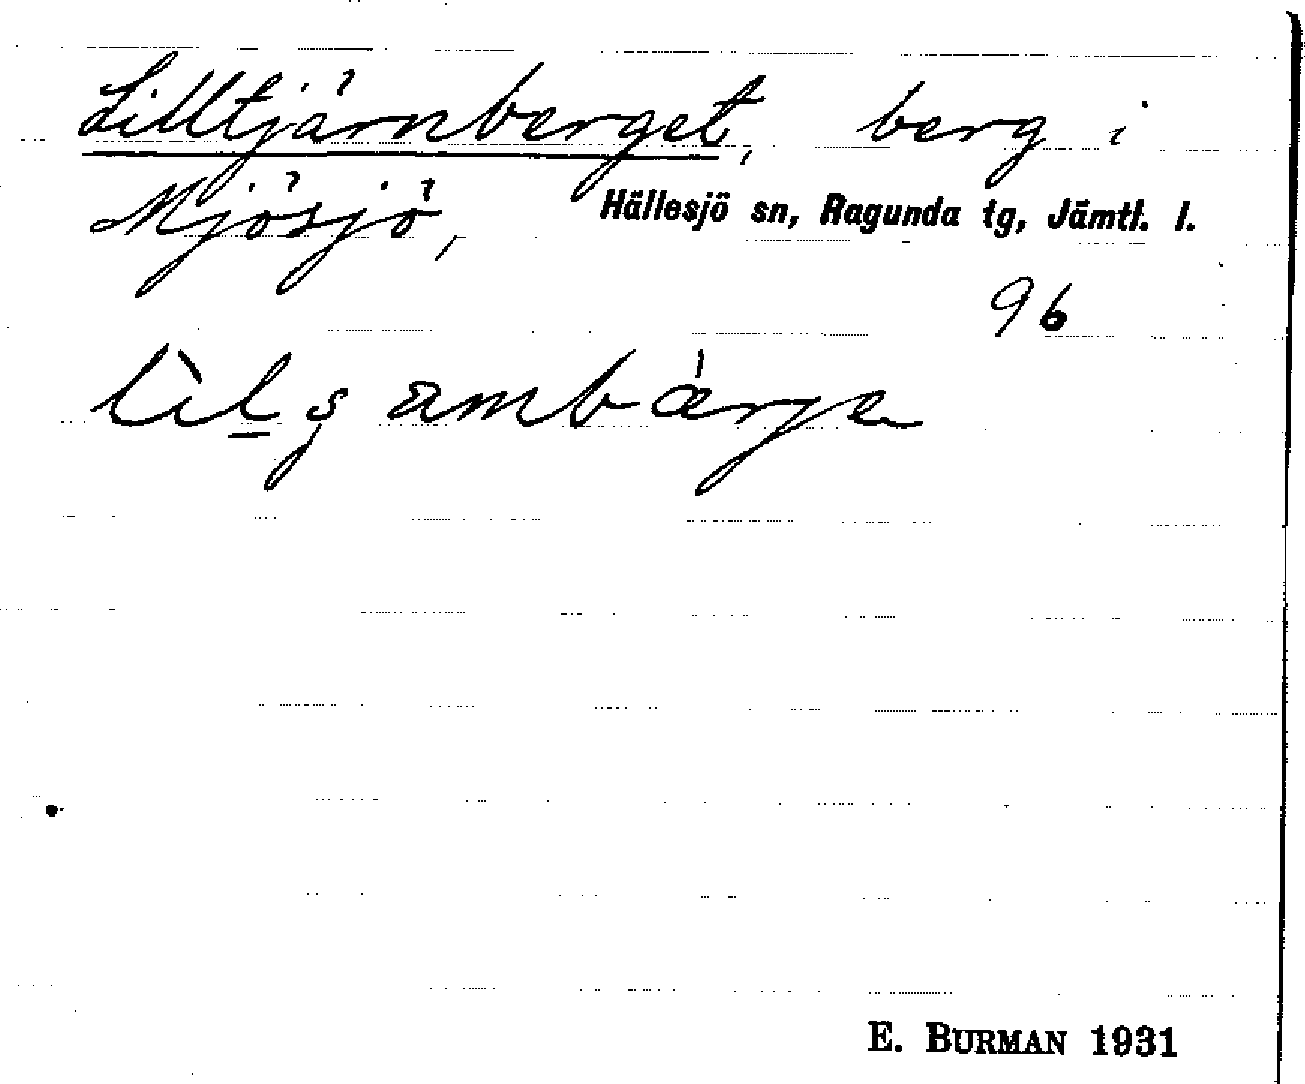 Lilltjärnberget, berg i
Mjösjö, Hällesjö sn, Ragunda tg, Jämtl. l.
96
E. BURMAN 1931